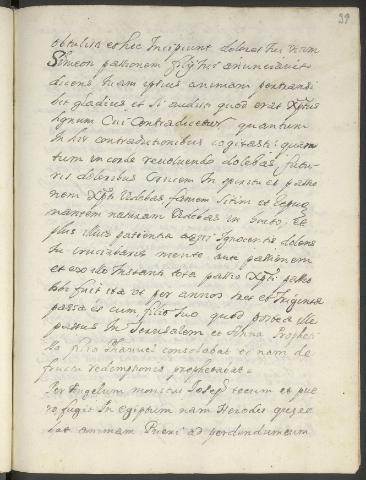 39
obtulisti et hec Incipiunt dolores tui nam
Simeon passionem filij tui anunciavit
dicens tuam ipsius animam pertransi
bit gladius et Si audisti quod erat Xptus
signum Cui Contradicetur quantum
In his contradictionibus cogitasti quan
tum in corde revolvendo dolebas futu
ris doloribus Crucem In spiritu et passio
nem Xpti videbas famem Sitim et repug
nantem naturam videbas in horto Et
plus illius patientia agni Ignocentis dolens
tu cruciabaris mente ante passionem
et ex illo Instanti tota passio Xpti passio
hoc fuit ita ut per annos tres et triginta
passa es cum filio tuo quod postea ille
passus In Jerusalem et Anna Propheti
sa filia Phanuel consolabat te nam de
fructu redemsionis prophetabat
Per Angelum monitus Joseph tecum et pue
ro fugit In egiptum nam Herodes quere
bat animam Pueri ad perdendum eum